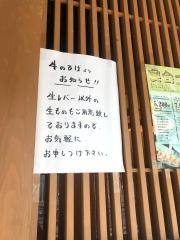 牛のさげより
お知らせ!!
生レバー以外の
生ものもご用意致し
ておりますので、
お気軽に
お申しつけ下さい。
5,200